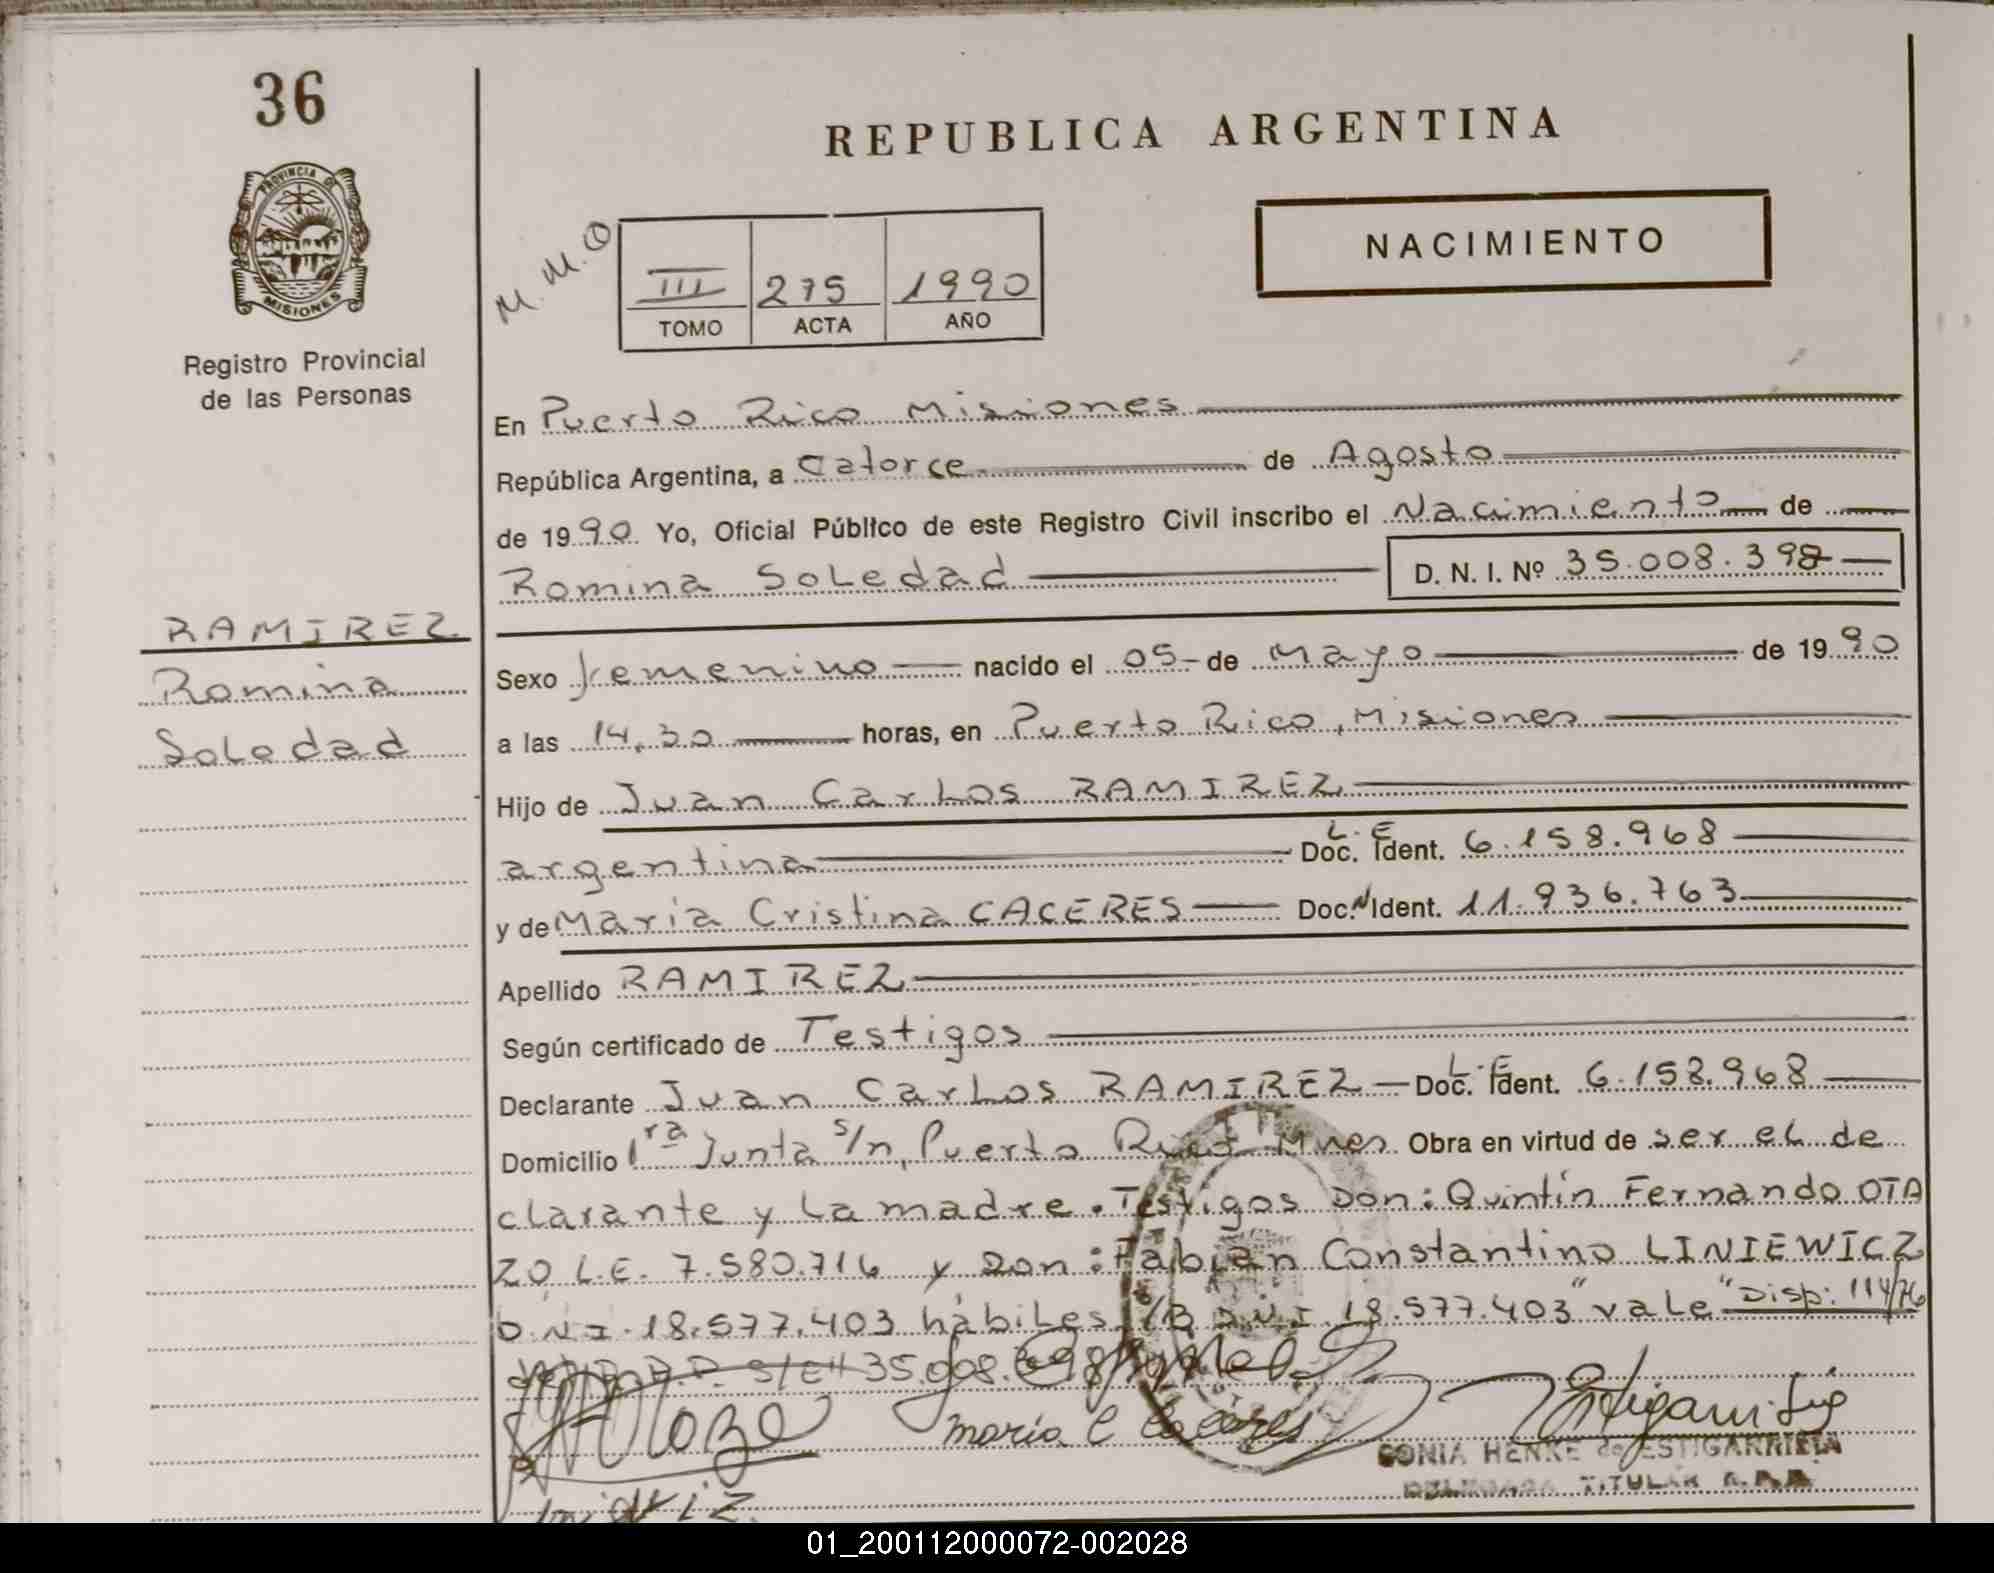 36
REPUBLICA ARGENTINA
PROVINCIA DE
MISIONES
Registro Provincial
de las Personas
M. M. O
III 275 1990
TOMO ACTA AÑO
NACIMIENTO
En Puerto Rico Misiones
República Argentina, a Catorce de Agosto
de 1990 Yo, Oficial Público de este Registro Civil inscribo el Nacimiento de
Romina Soledad D. N. I. Nº 35.008.398
RAMIREZ
Romina
Soledad
Sexo femenino nacido el 05 de Mayo de 1990
a las 14,30 horas, en Puerto Rico, Misiones
Hijo de Juan Carlos RAMIREZ
argentina L.E Doc. Ident. 6.158.968
y de Maria Cristina CACERES Doc. Ident. 11.936.763
Apellido RAMIREZ
Según certificado de Testigos
Declarante Juan Carlos RAMIREZ L.E Doc. Ident. 6.158.968
Domicilio 1ra Junta s/n, Puerto Rico Mnes Obra en virtud de ser el de
clarante y la madre. Testigos Don: Quintín Fernando OTA
ZO, L.E. 7.580.716 y Don: Fabián Constantino LINIEWICZ
D.N.I. 18.577.403 hábiles. S/B D.N.I 18.577.403" vale "Disp: 114/76
S/E 35.008.398
maría C Caceres
SONIA HENKE de ESTIGARRIBIA
DELEGADA TITULAR R.P.P.
01_200112000072-002028